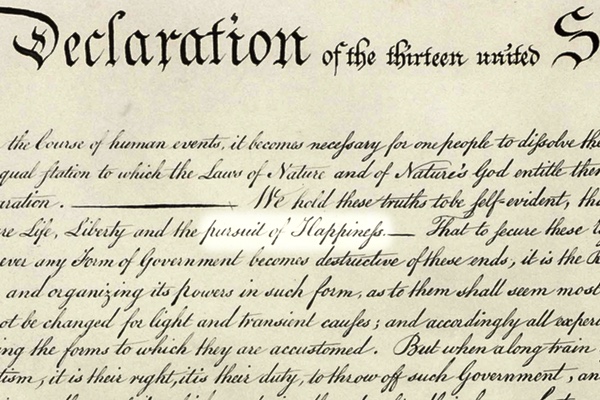 Declaration of the thirteen united S
the Course of human events, it becomes necessary for one people to dissolve the
equal station to which the Laws of Nature and of Nature's God entitle them
aration. We hold these truths to be self-evident, tha
re Life, Liberty and the pursuit of Happiness.— That to secure these
ever any Form of Government becomes destructive of these ends, it is the R
and organizing its powers in such form, as to them shall seem most
ot be changed for light and transient causes; and accordingly all experi
ing the forms to which they are accustomed. But when a long train
tism, it is their right, it is their duty, to throw off such Government, an